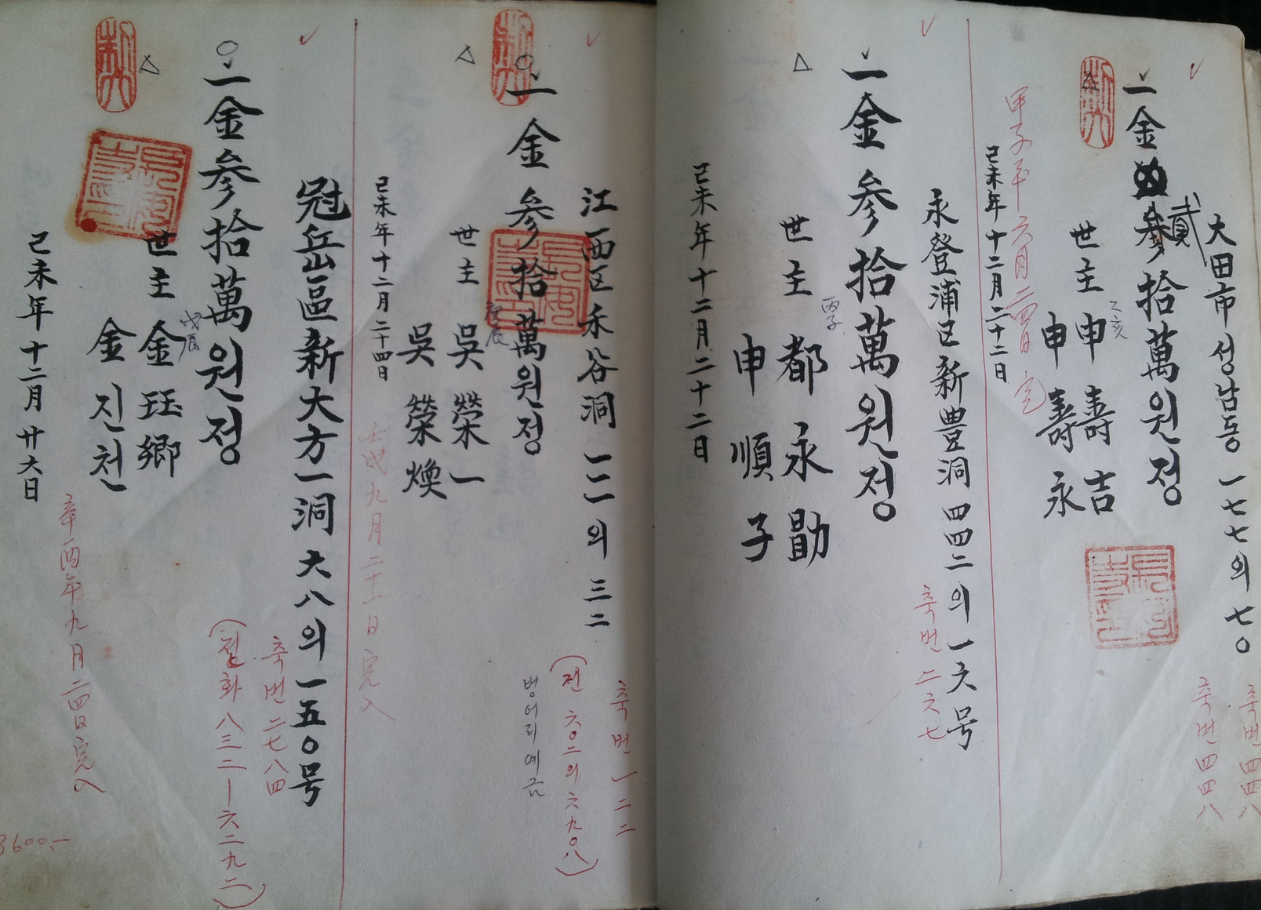 大田市 성남동 一七七의 七〇
축번 四四八
축번 四四八
一金 貳拾萬원정
世主 申壽吉
乙亥
申壽永
己未年十二月二十二日
甲子年 六月 二四日 完
永登浦区 新豊洞 四四二의 一六号
축번 二六七
一金 參拾萬원정
世主 都永勛
丙子
申順子
己未年十二月二十二日
江西区 禾谷洞 一二一의 三二
축번 一二二
(전 六〇二의 六九〇八)
一金 參拾萬원정
벙어리예금
世主 吳榮一
庚辰
吳榮煥
己未年十二月二十四日
壬戌 九月 二十一日 完入
冠岳區 新大方一洞 六八의 一五〇号
축번 二七八四
(전화 八三二-六二九二)
一金 參拾萬원정
世主 金珏鄉
戊辰
金진천
己未年十二月廿六日
辛酉年 九月 二四日 完入
3600,-